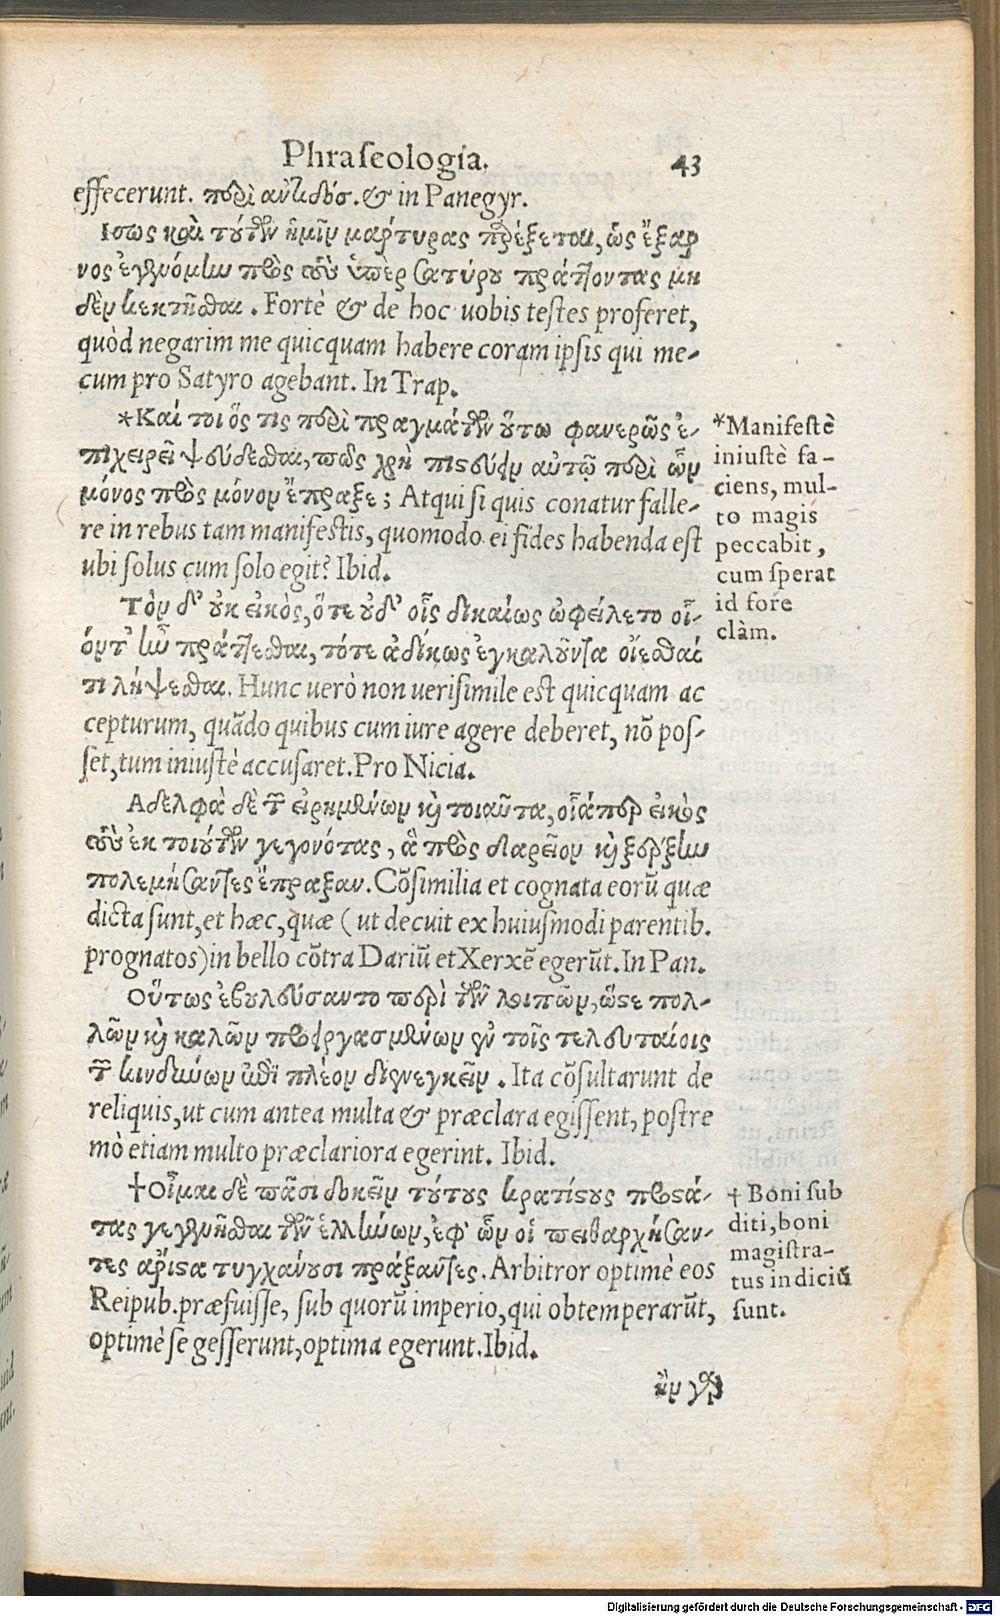 Phraseologia.
43
effecerunt. περὶ ἀντιδόσ. & in Panegyr.
Ισως καὶ τούτων ἡμῖν μάρτυρας παρέξεται, ὡς ἔξαρ
νος ἐγενόμην πρὸς τοὺς ὑπὲρ Σατύρου πράττοντας μη
δὲν κεκτῆσθαι. Fortè & de hoc uobis testes proferet,
quòd negarim me quicquam habere coram ipsis qui me-
cum pro Satyro agebant. In Trap.
*Καί τοι ὅς τις περὶ πραγμάτων οὕτω φανερῶς ἐ-
πιχειρεῖ ψεύδεσθαι, πῶς χρὴ πιστεύειν αὐτῷ περὶ ὧν
μόνος πρὸς μόνον ἔπραξε; Atqui si quis conatur falle-
re in rebus tam manifestis, quomodo ei fides habenda est
ubi solus cum solo egit? Ibid.
*Manifestè
iniustè fa-
ciens, mul-
to magis
peccabit,
cum sperat
id fore
clàm.
Τὸν δ' οὐκ εἰκὸς, ὅτε οὐδ' οἷς δικαίως ὠφείλετο οἷ-
όντ' ἦν πράττεσθαι, τότε ἀδίκως ἐγκαλοῦντα οἴεσθαί
τι λήψεσθαι. Hunc uerò non uerisimile est quicquam ac
cepturum, quãdo quibus cum iure agere deberet, nõ pos-
set, tum iniustè accusaret. Pro Nicia.
Αδελφὰ δὲ τῶν εἰρημένων καὶ τοιαῦτα, οἷάπερ εἰκὸς
τοὺς ἐκ τοιούτων γεγονότας, ἃ πρὸς Δαρεῖον καὶ Ξέρξην
πολεμήσαντες ἔπραξαν. Cõsimilia et cognata eorũ quæ
dicta sunt, et hæc, quæ (ut decuit ex huiusmodi parentib.
prognatos) in bello cõtra Dariũ et Xerxẽ egerũt. In Pan.
Οὕτως ἐβουλεύσαντο περὶ τῶν λοιπῶν, ὥστε πολ-
λῶν καὶ καλῶν προειργασμένων ἐν τοῖς τελευταίοις
τῶν κινδύνων ἔτι πλέον διενεγκεῖν. Ita cõsultarunt de
reliquis, ut cum antea multa & præclara egissent, postre
mò etiam multo præclariora egerint. Ibid.
†Οἶμαι δὲ πᾶσι δοκεῖν τούτους κρατίστους προστά-
τας γεγενῆσθαι τῶν ἑλλήνων, ἐφ' ὧν οἱ πειθαρχήσαν-
τες ἄριστα τυγχάνουσι πράξαντες. Arbitror optimè eos
Reipub. præfuisse, sub quorũ imperio, qui obtemperarũt,
optimè se gesserunt, optima egerunt. Ibid.
† Boni sub
diti, boni
magistra-
tus indiciũ
sunt.
ἂν γὰρ
Digitalisierung gefördert durch die Deutsche Forschungsgemeinschaft - DFG